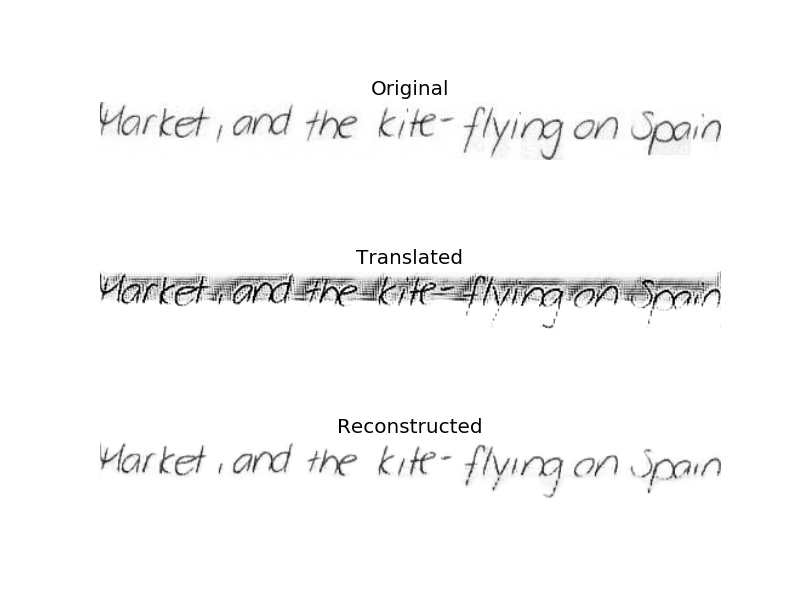 Original
Market, and the kite-flying on Spain
Translated
Market, and the kite-flying on Spain
Reconstructed
Market, and the kite-flying on Spain